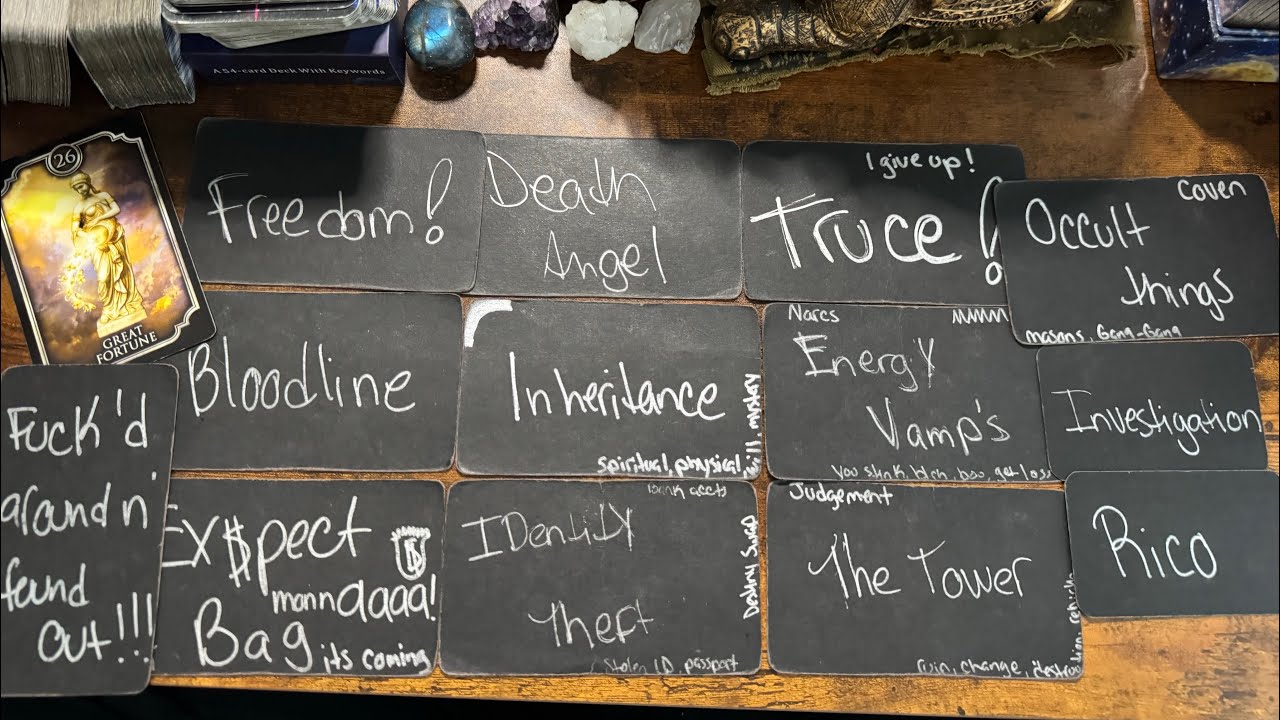 A 54-card Deck With Keywords
26
GREAT
FORTUNE
Freedom!
Death
Angel
I give up!
Truce!
Coven
Occult
things
masons, Gang-Gang
Bloodline
Inheritance
spiritual, physical,
will,
Narcs
Energy
Vamp's
You stink, bich, boo, get loss
Investigation
Fuck'd
around n'
found
out!!!
Ex$pect
manndaaaa!
Bag
its coming
bank accts
IDentity
Theft
Destiny Swap
Stolen ID, passport
Judgement
The Tower
ruin, change, destruction
Rico